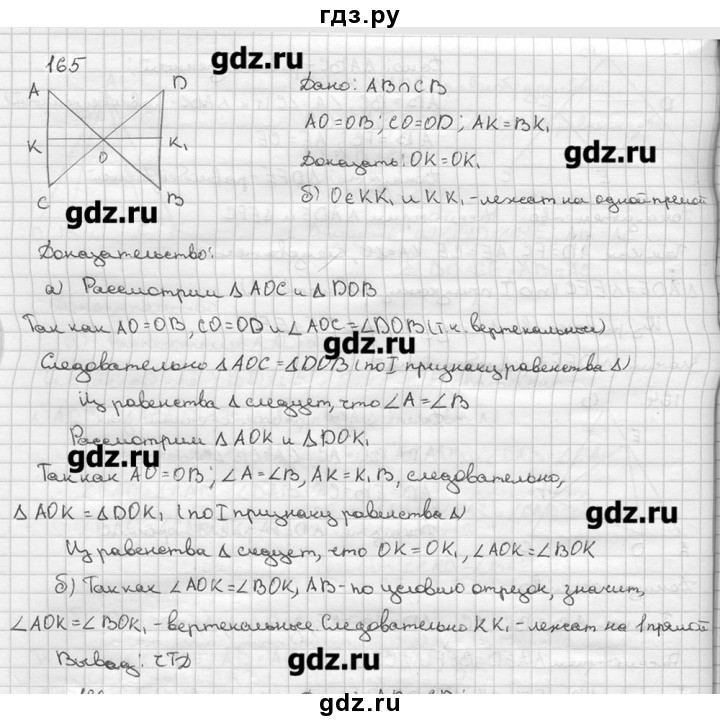 гдз.ру
gdz.ru
165
A
D
Дано: AB∩CB
K
K₁
O
AO=OB; CO=OD; AK=BK₁
gdz.ru
Доказать: OK=OK₁
C
B
gdz.ru
б) O∈KK₁ и KK₁ - лежат на одной прямой
Доказательство:
а) Рассмотрим ΔAOC и ΔDOB
Так как AO=OB, CO=OD и ∠AOC=∠DOB (т.к. вертекальные)
gdz.ru
Следовательно ΔAOC=ΔDOB (по I признаку равенства Δ)
Из равенства Δ следует, что ∠A=∠B
Рассмотрим ΔAOK и ΔDOK₁
gdz.ru
Так как AO=OB; ∠A=∠B, AK=K₁B, следовательно,
ΔAOK=ΔDOK₁ (по I признаку равенства Δ)
gdz.ru
Из равенства Δ следует, что OK=OK₁, ∠AOK=∠BOK
б) Так как ∠AOK=∠BOK, AB-по условию отрезок, значит,
∠AOK=∠BOK₁ - вертекальные Следовательно KK₁ - лежат на 1 прямой
Вывод: чтд
gdz.ru
гдз.ру